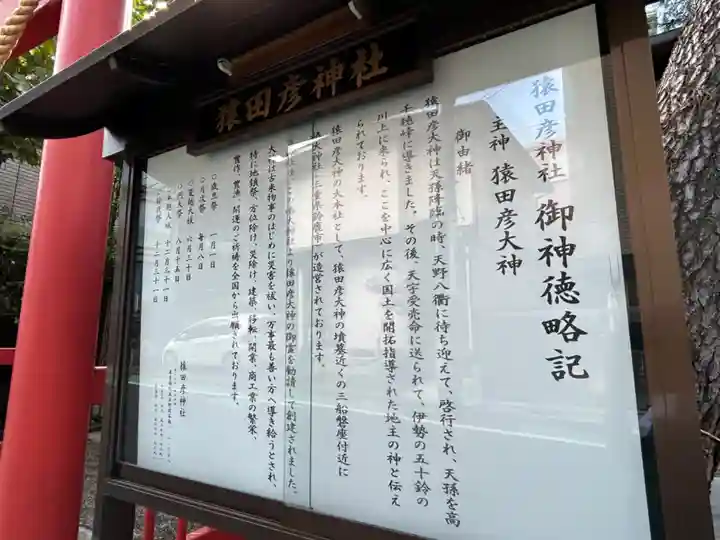 猿田彦神社
猿田彦神社 御神徳略記
主神 猿田彦大神
御由緒
猿田彦大神は天孫降臨の時、天野八衢に待ち迎えて、啓行され、天孫を高
千穂峰に導きました。その後、天宇受売命に送られて、伊勢の五十鈴の
川上に来られ、ここを中心に広く国土を開拓指導された地主の神と伝え
られております。
猿田彦大神の大本社として、猿田彦大神の墳墓近くの三船磐座付近に
大神社(三重県鈴鹿市)が造営されております。
より猿田彦大神の御霊を勧請して創建されました。
大神は古来物事のはじめに災害を祓い、万事最も善い方へ導き給うとされ、
特に地鎮祭、方位除け、災除け、建築、移転、開業、商工業の繁栄、
豊作、豊漁、開運のご祈祷を全国から出願されております。
○歳旦祭 一月一日
○月次祭 毎月八日
○夏越大祓 六月三十日
○例大祭 八月十五日
十二月三十一日
十二月三十一日
猿田彦神社